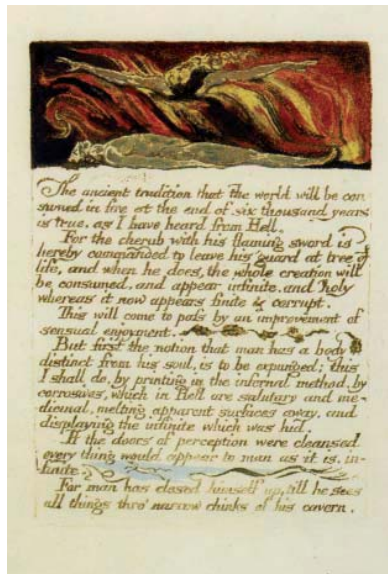 The ancient tradition that the world will be con
sumed in fire at the end of six thousand years
is true, as I have heard from Hell.
For the cherub with his flaming sword is
hereby commanded to leave his guard at tree of
life, and when he does, the whole creation will
be consumed, and appear infinite, and holy
whereas it now appears finite & corrupt.
This will come to pass by an improvement of
sensual enjoyment.
But first the notion that man has a body
distinct from his soul, is to be expunged; this
I shall do, by printing in the infernal method, by
corrosives, which in Hell are salutary and me-
dicinal, melting apparent surfaces away, and
displaying the infinite which was hid.
If the doors of perception were cleansed
every thing would appear to man as it is, in-
finite.
For man has closed himself up, till he sees
all things thro' narrow chinks of his cavern.